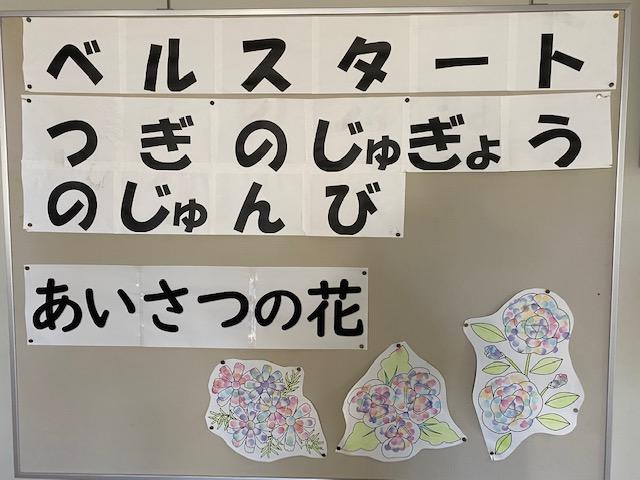 ベルスタート
つぎのじゅぎょう
のじゅんび
あいさつの花